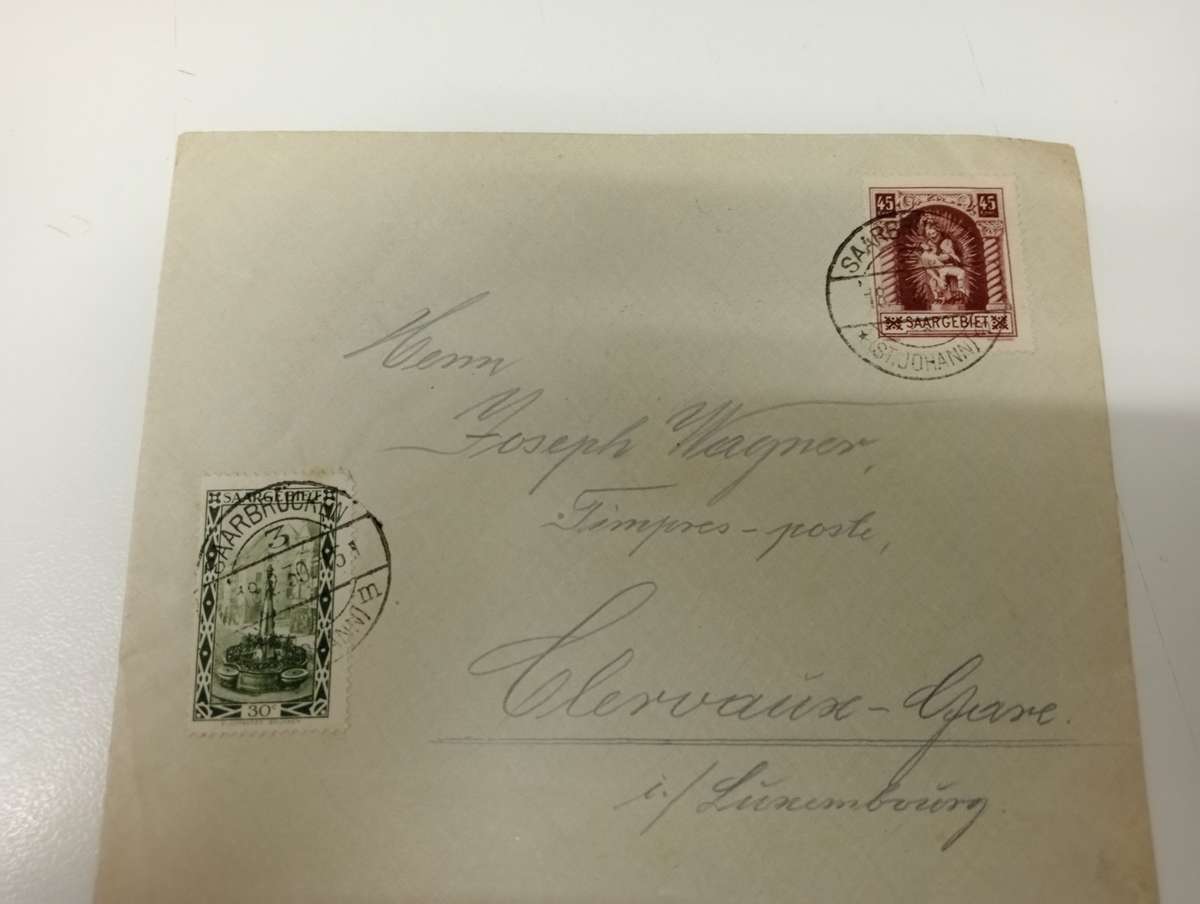 45 45
SAARGEBIET
SAARB
8
* (ST. JOHANN)
Herrn
Joseph Wagner,
Timpres-poste,
Clervaux-Gare.
i./Luxembourg.
SAARGEBIET
SAARBRÜCKEN
3
30
E
30 c